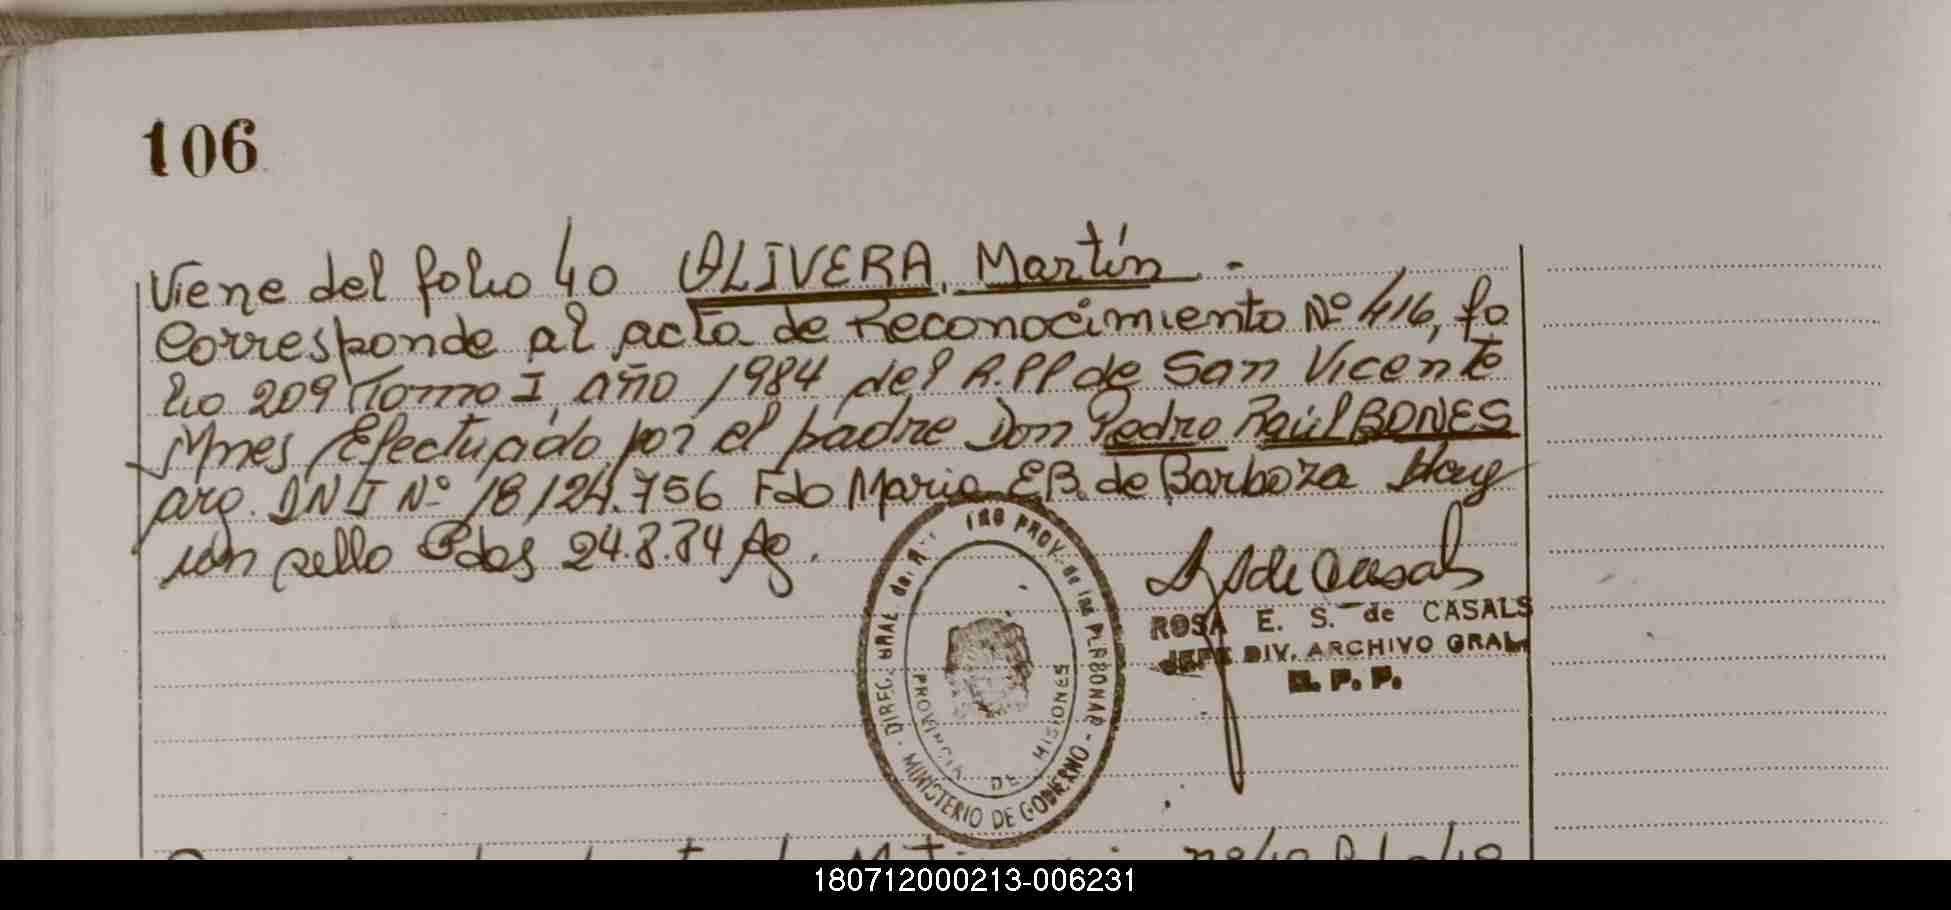 106
Viene del folio 40 OLIVERA, Martín.-
Corresponde al acta de Reconocimiento Nº 416, fo
lio 209 Tomo I, año 1984 del R.PP de San Vicente
Mnes, Efectuado por el padre Don Pedro Raúl BONES
arg. DNI Nº 18.124.756 Fdo Maria E.B. de Barboza Hay
un sello Pdas 24.8.84
DIREC. GRAL. del R. PROV. de las PERSONAS - MINISTERIO DE GOBIERNO -
PROVINCIA DE MISIONES
de Casals
ROSA E. S. de CASALS
JEFE DIV. ARCHIVO GRAL.
R. P. P.
180712000213-006231